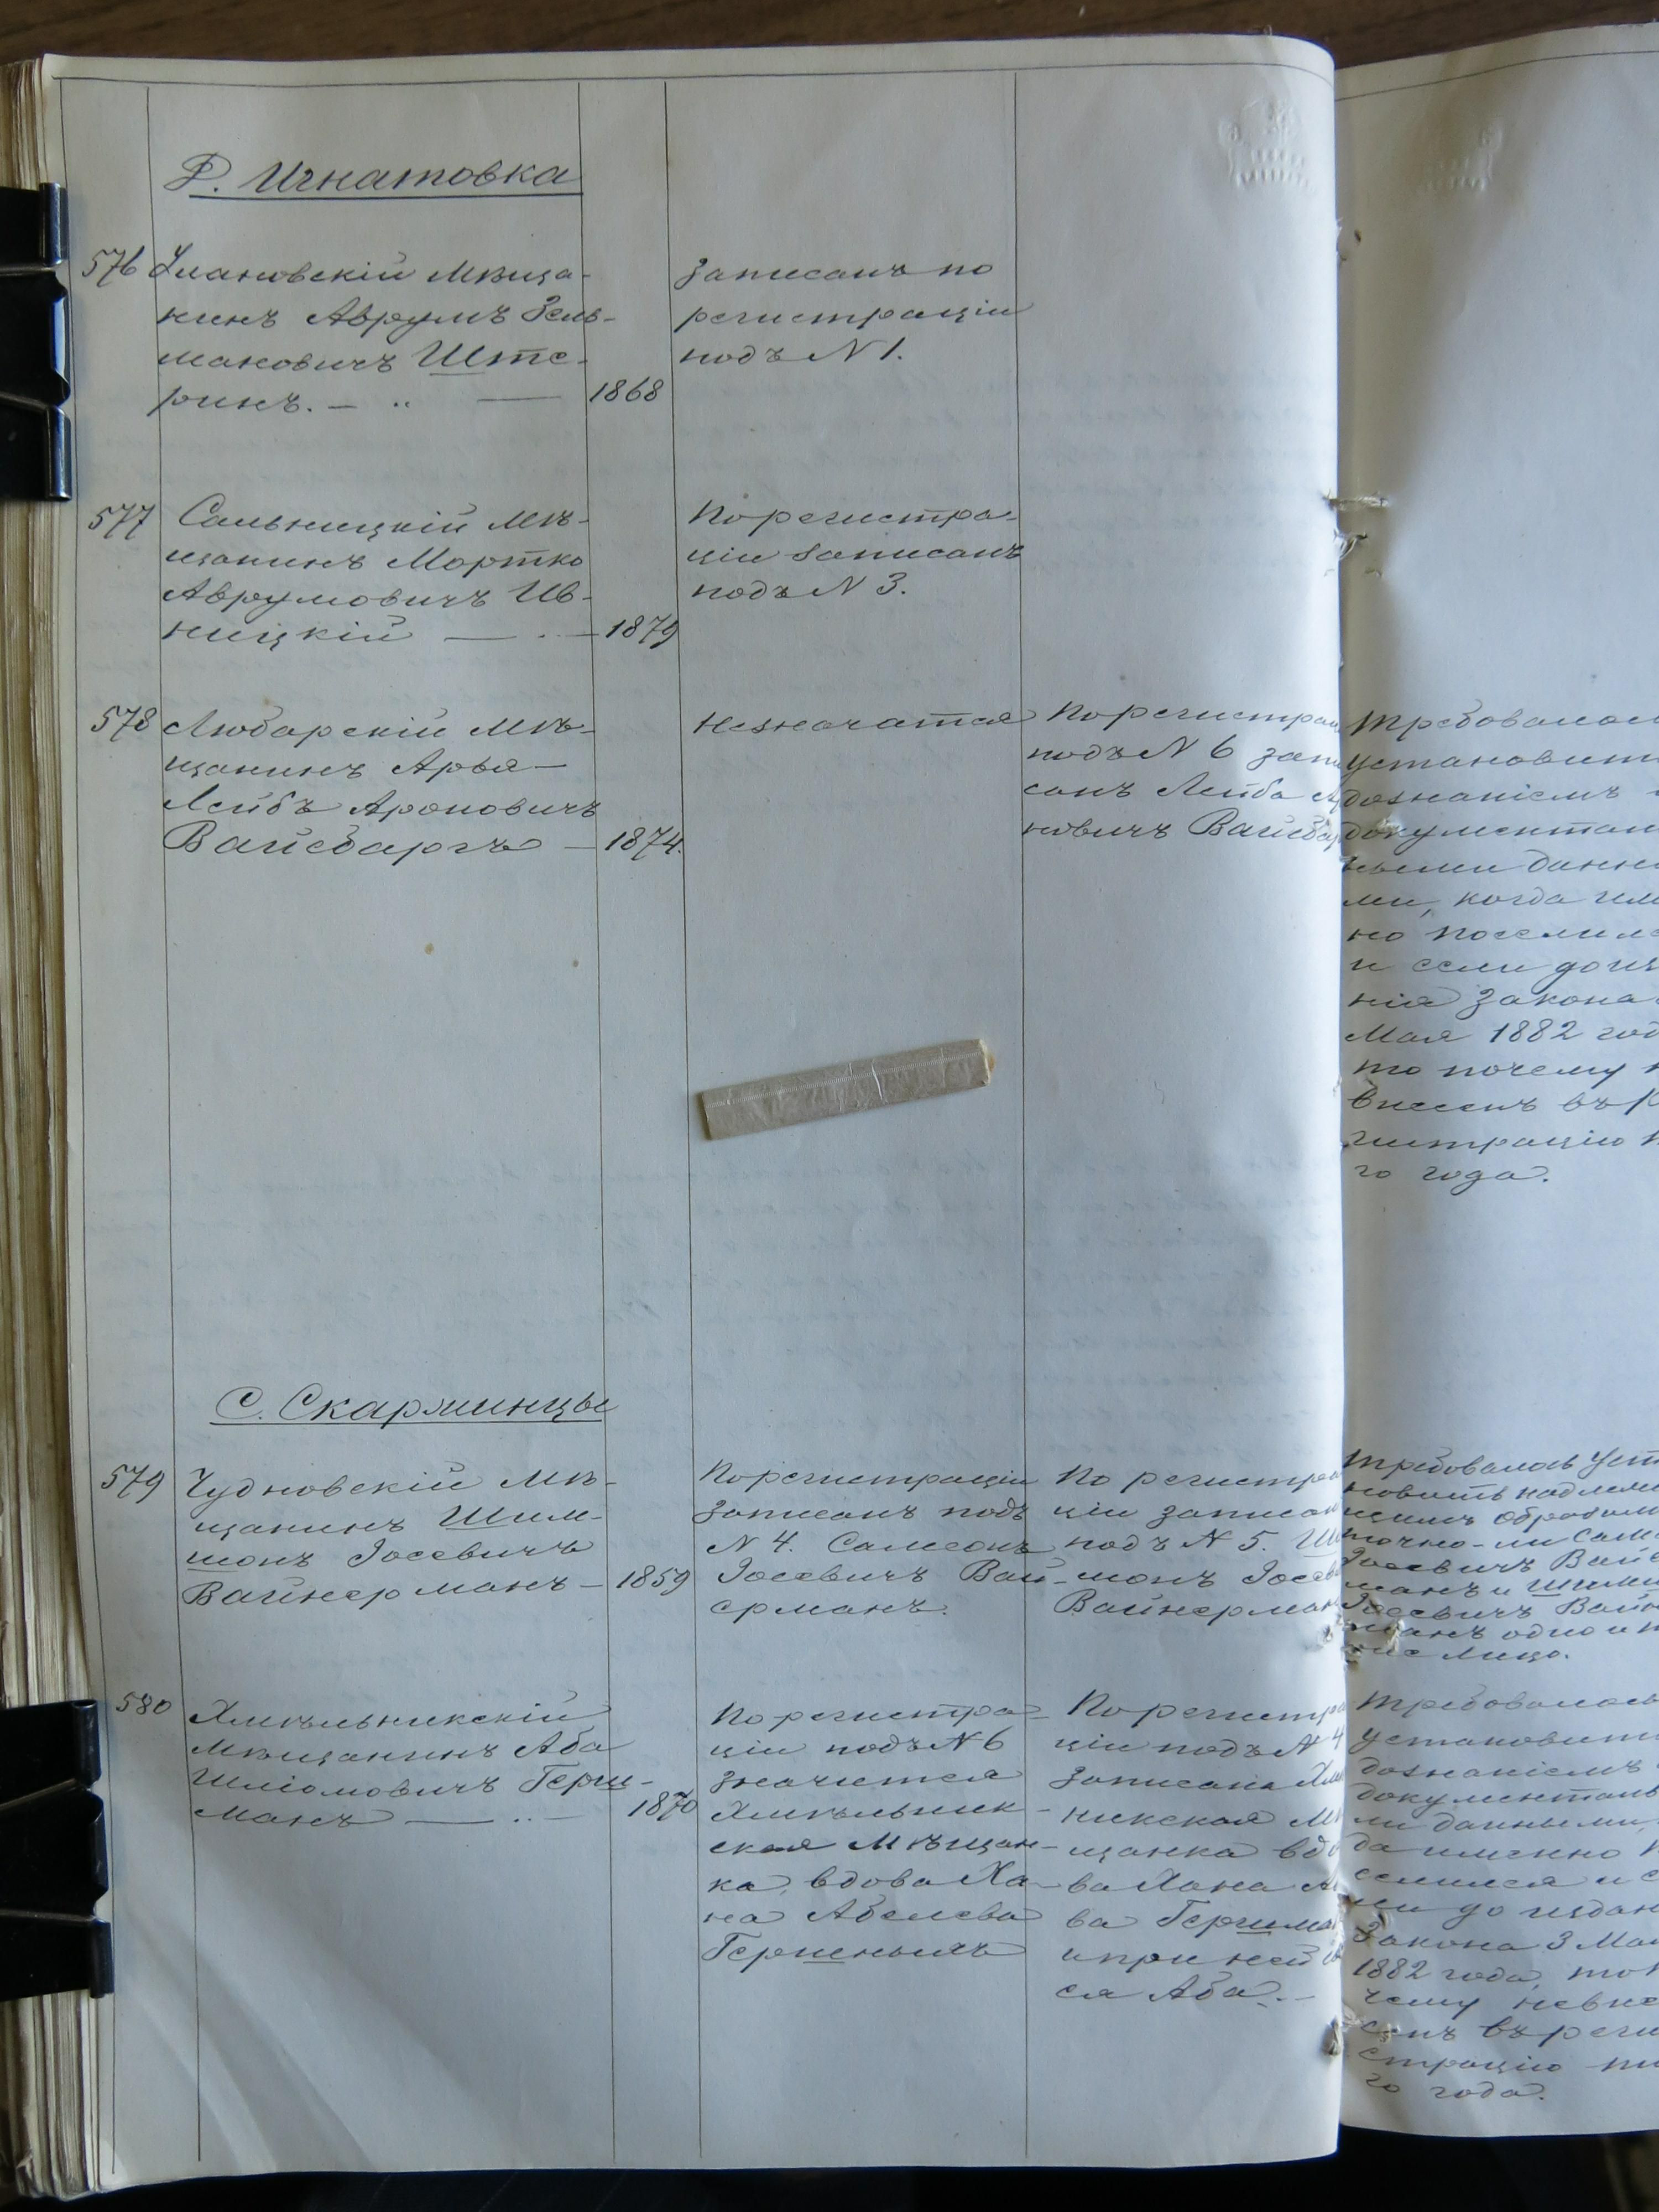 Д. Игнатовка
576
Улановскій Мѣща-
нинъ Аврумъ Зель-
мановичъ Ште-
ринъ. — „ — 1868
записанъ по
регистраціи
подъ N 1.
577
Сальницкій Мѣ-
щанинъ Мортко
Аврумовичъ Ив-
ницкій — 1879
По регистра-
ціи записанъ
подъ N 3.
578
Любарскій Мѣ-
щанинъ Арья-
Лейбъ Ароновичъ
Вайсбаргъ — 1874.
Незначатся
По регистрац
подъ N 6 запи
санъ Лейба А
новичъ Вайсба
Требовалось
установит
дознаніемъ
документал
ными данны
ми, когда име
но поселилс
и если до изд
нія закона
Мая 1882 год
то почему н
внесенъ въ р
гистрацію т
го года.
С. Скаржинцы
579
Чудновскій Мѣ-
щанинъ Шим-
монъ Іосевичъ
Вайнерманъ — 1859
По регистраціи
записанъ подъ
N 4. Самсонъ
Іосевичъ Вай-
ерманъ.
По регистра
ціи записан
подъ N 5. Ши
монъ Іосев
Вайнерман
Требовалось уст
новить надлежа
щимъ образом
точно-ли Самс
Іосевичъ Вайе
манъ и Шимм
Іосевичъ Вайн
манъ одно и т
же лицо.
580
Хмѣльникскій
Мѣщанинъ Аба
Шліомовичъ Герш-
манъ — „ — 1870
По регистра-
ціи подъ N 6
значится
Хмѣльник-
ская Мѣщан-
ка, вдова Ха-
на Абелева
Гершенылъ
По регистра
ціи подъ N 4
записана Хмѣ
никская Мѣ
щанка вдо
ва Хана А
ва Гершма
и при ней
ся Аба. —
Требовалось
установит
дознаніемъ
документаль
ми данными
да именно п
селился и е
ли до издан
Закона 3 Мая
1882 года, то п
чему невне
сенъ въ реги
страцію то
го года.